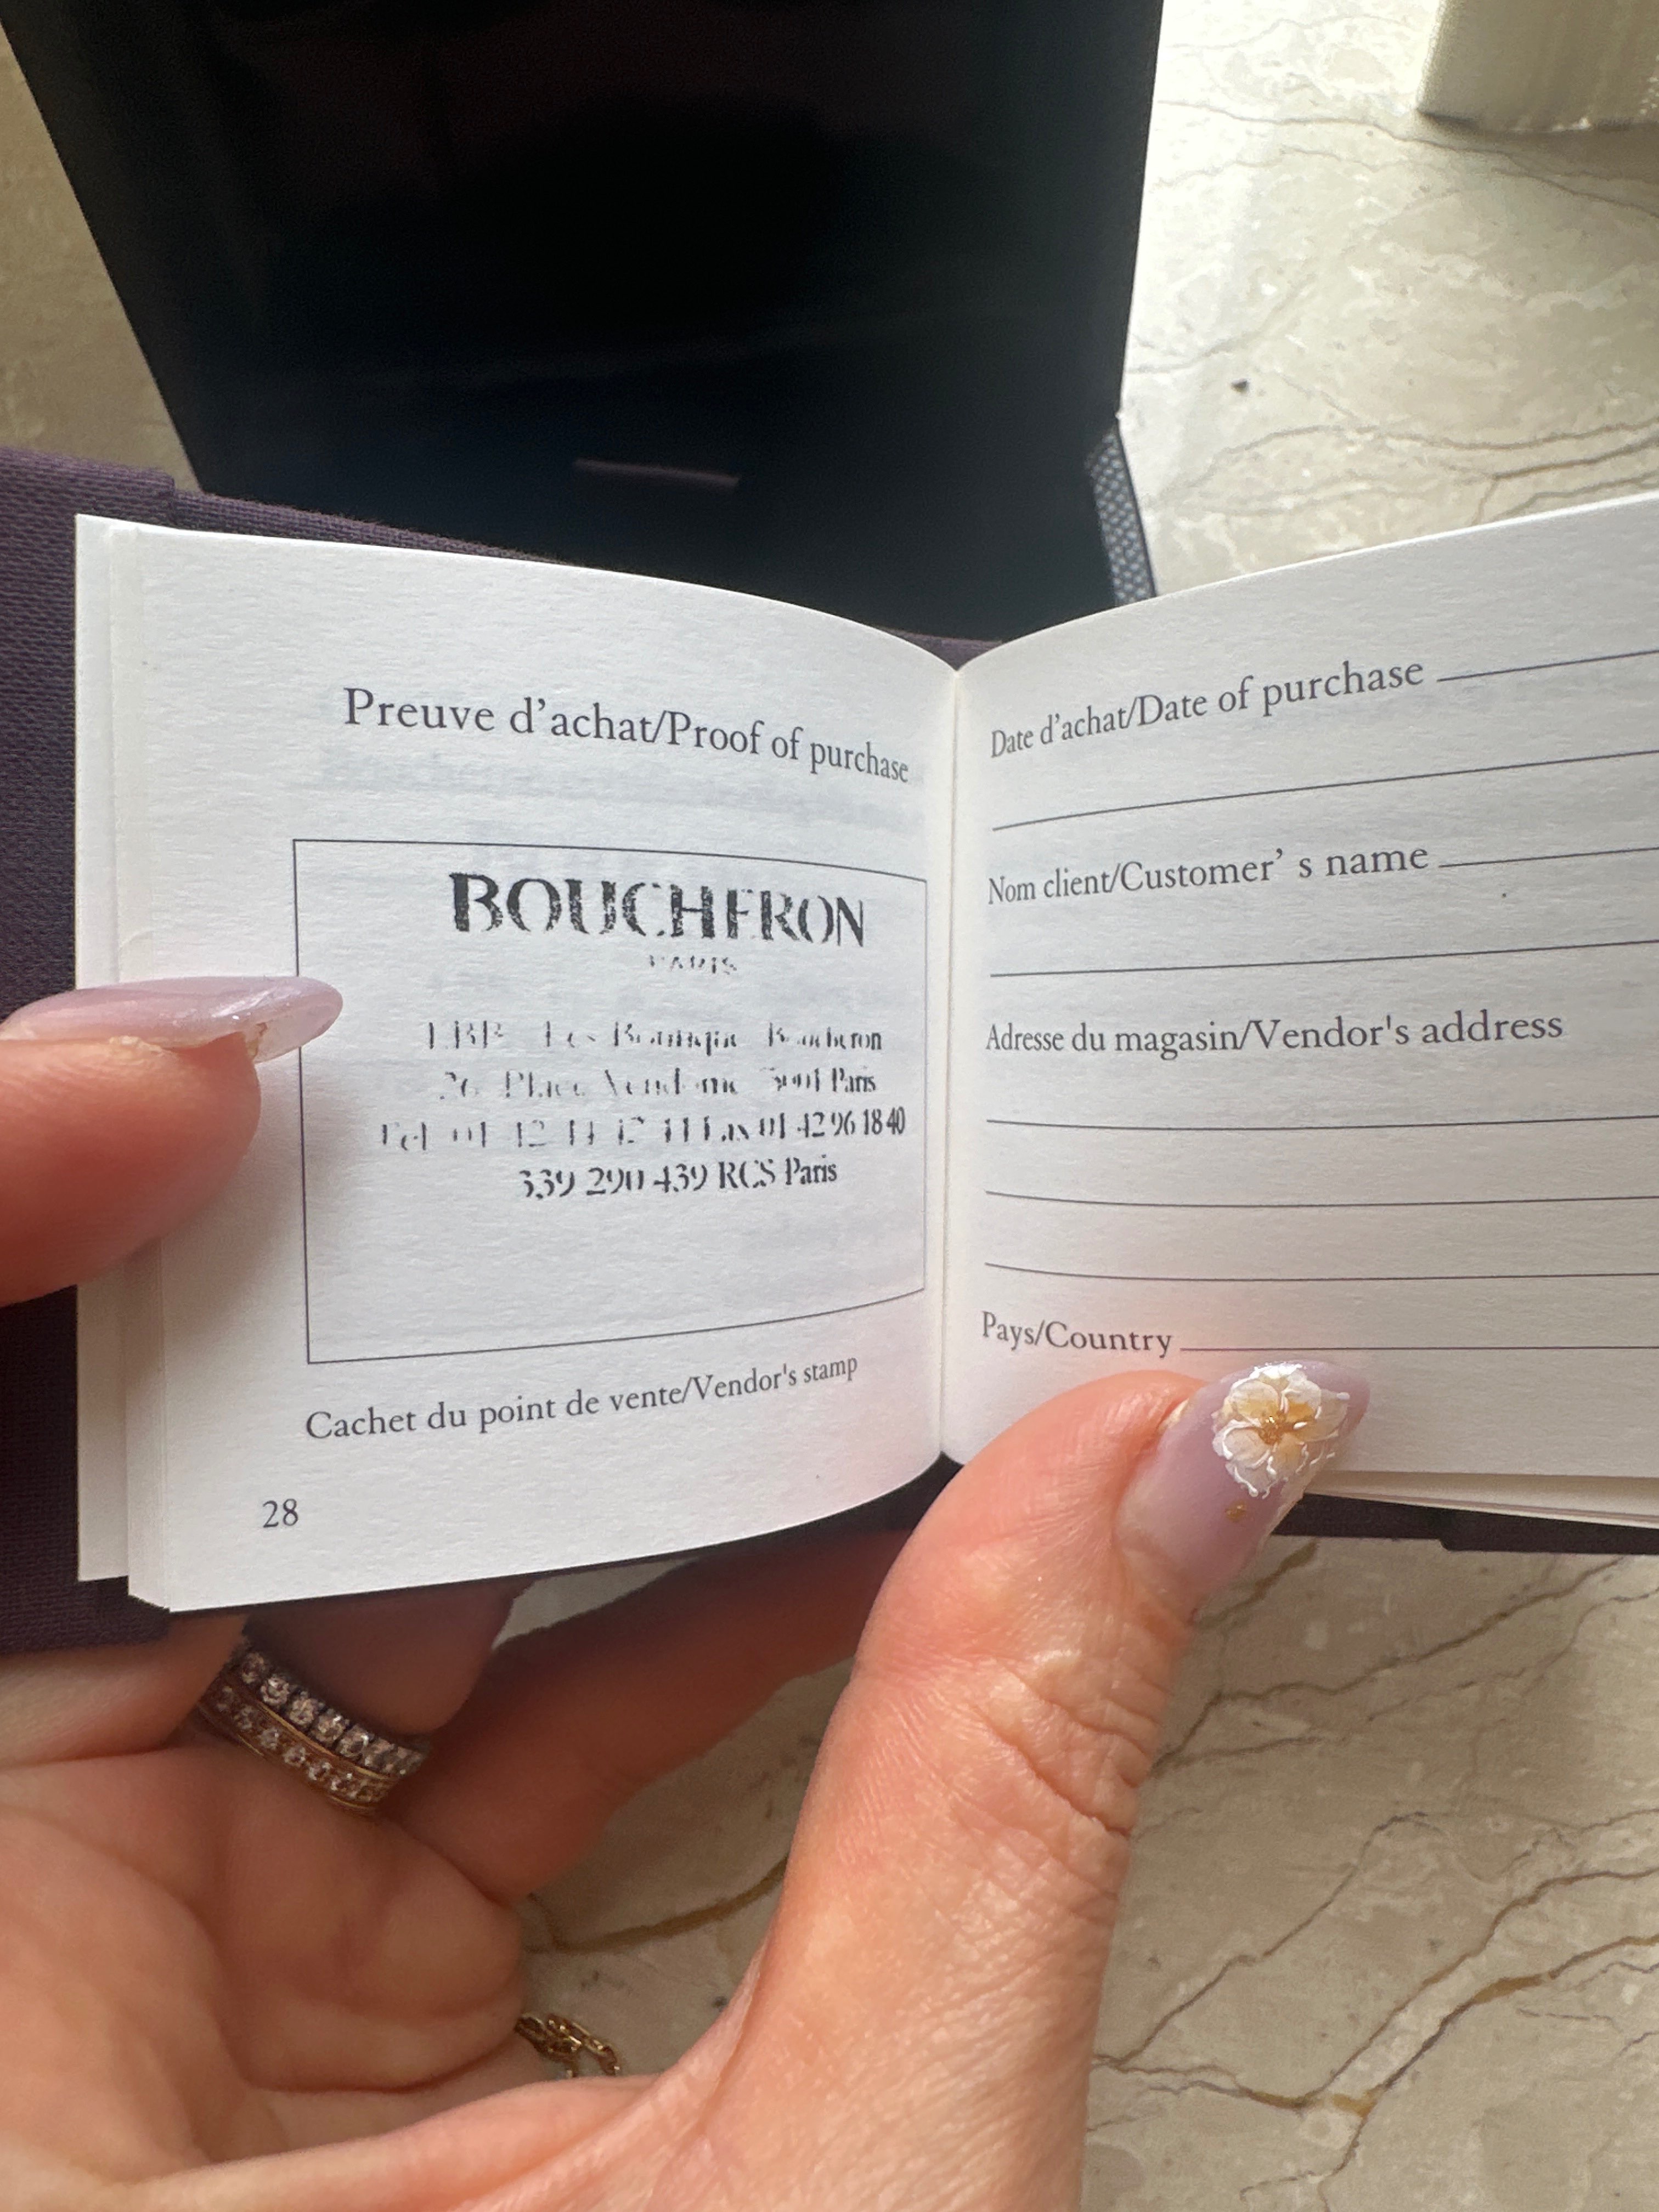 Preuve d'achat/Proof of purchase
BOUCHERON
PARIS
LBB Les Boutique Boucheron
26 Place Vendome Paris
Tel 01 42 44 42 44 Fax 01 42 96 18 40
339 290 439 RCS Paris
Cachet du point de vente/Vendor's stamp
28
Date d'achat/Date of purchase
Nom client/Customer' s name
Adresse du magasin/Vendor's address
Pays/Country